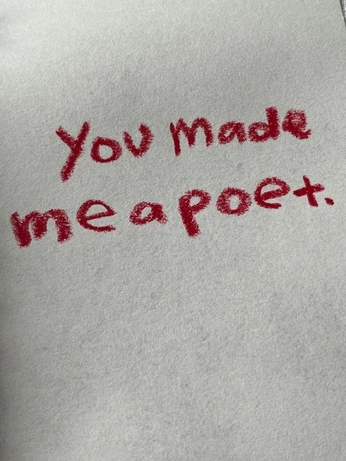 You made
me a poet.